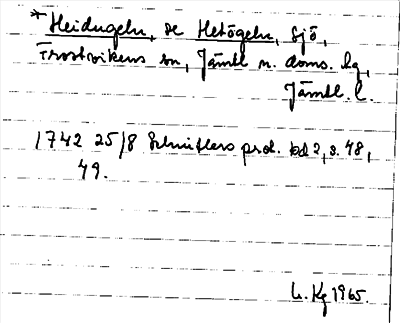 * Heidugeln, se Hetögeln, sjö,
Frostvikens sn, Jämtl n. doms. hg,
Jämtl. l.
1742 25/8 Schnitlers prot. bd 2, s. 48,
49.
L. Kg 1965.